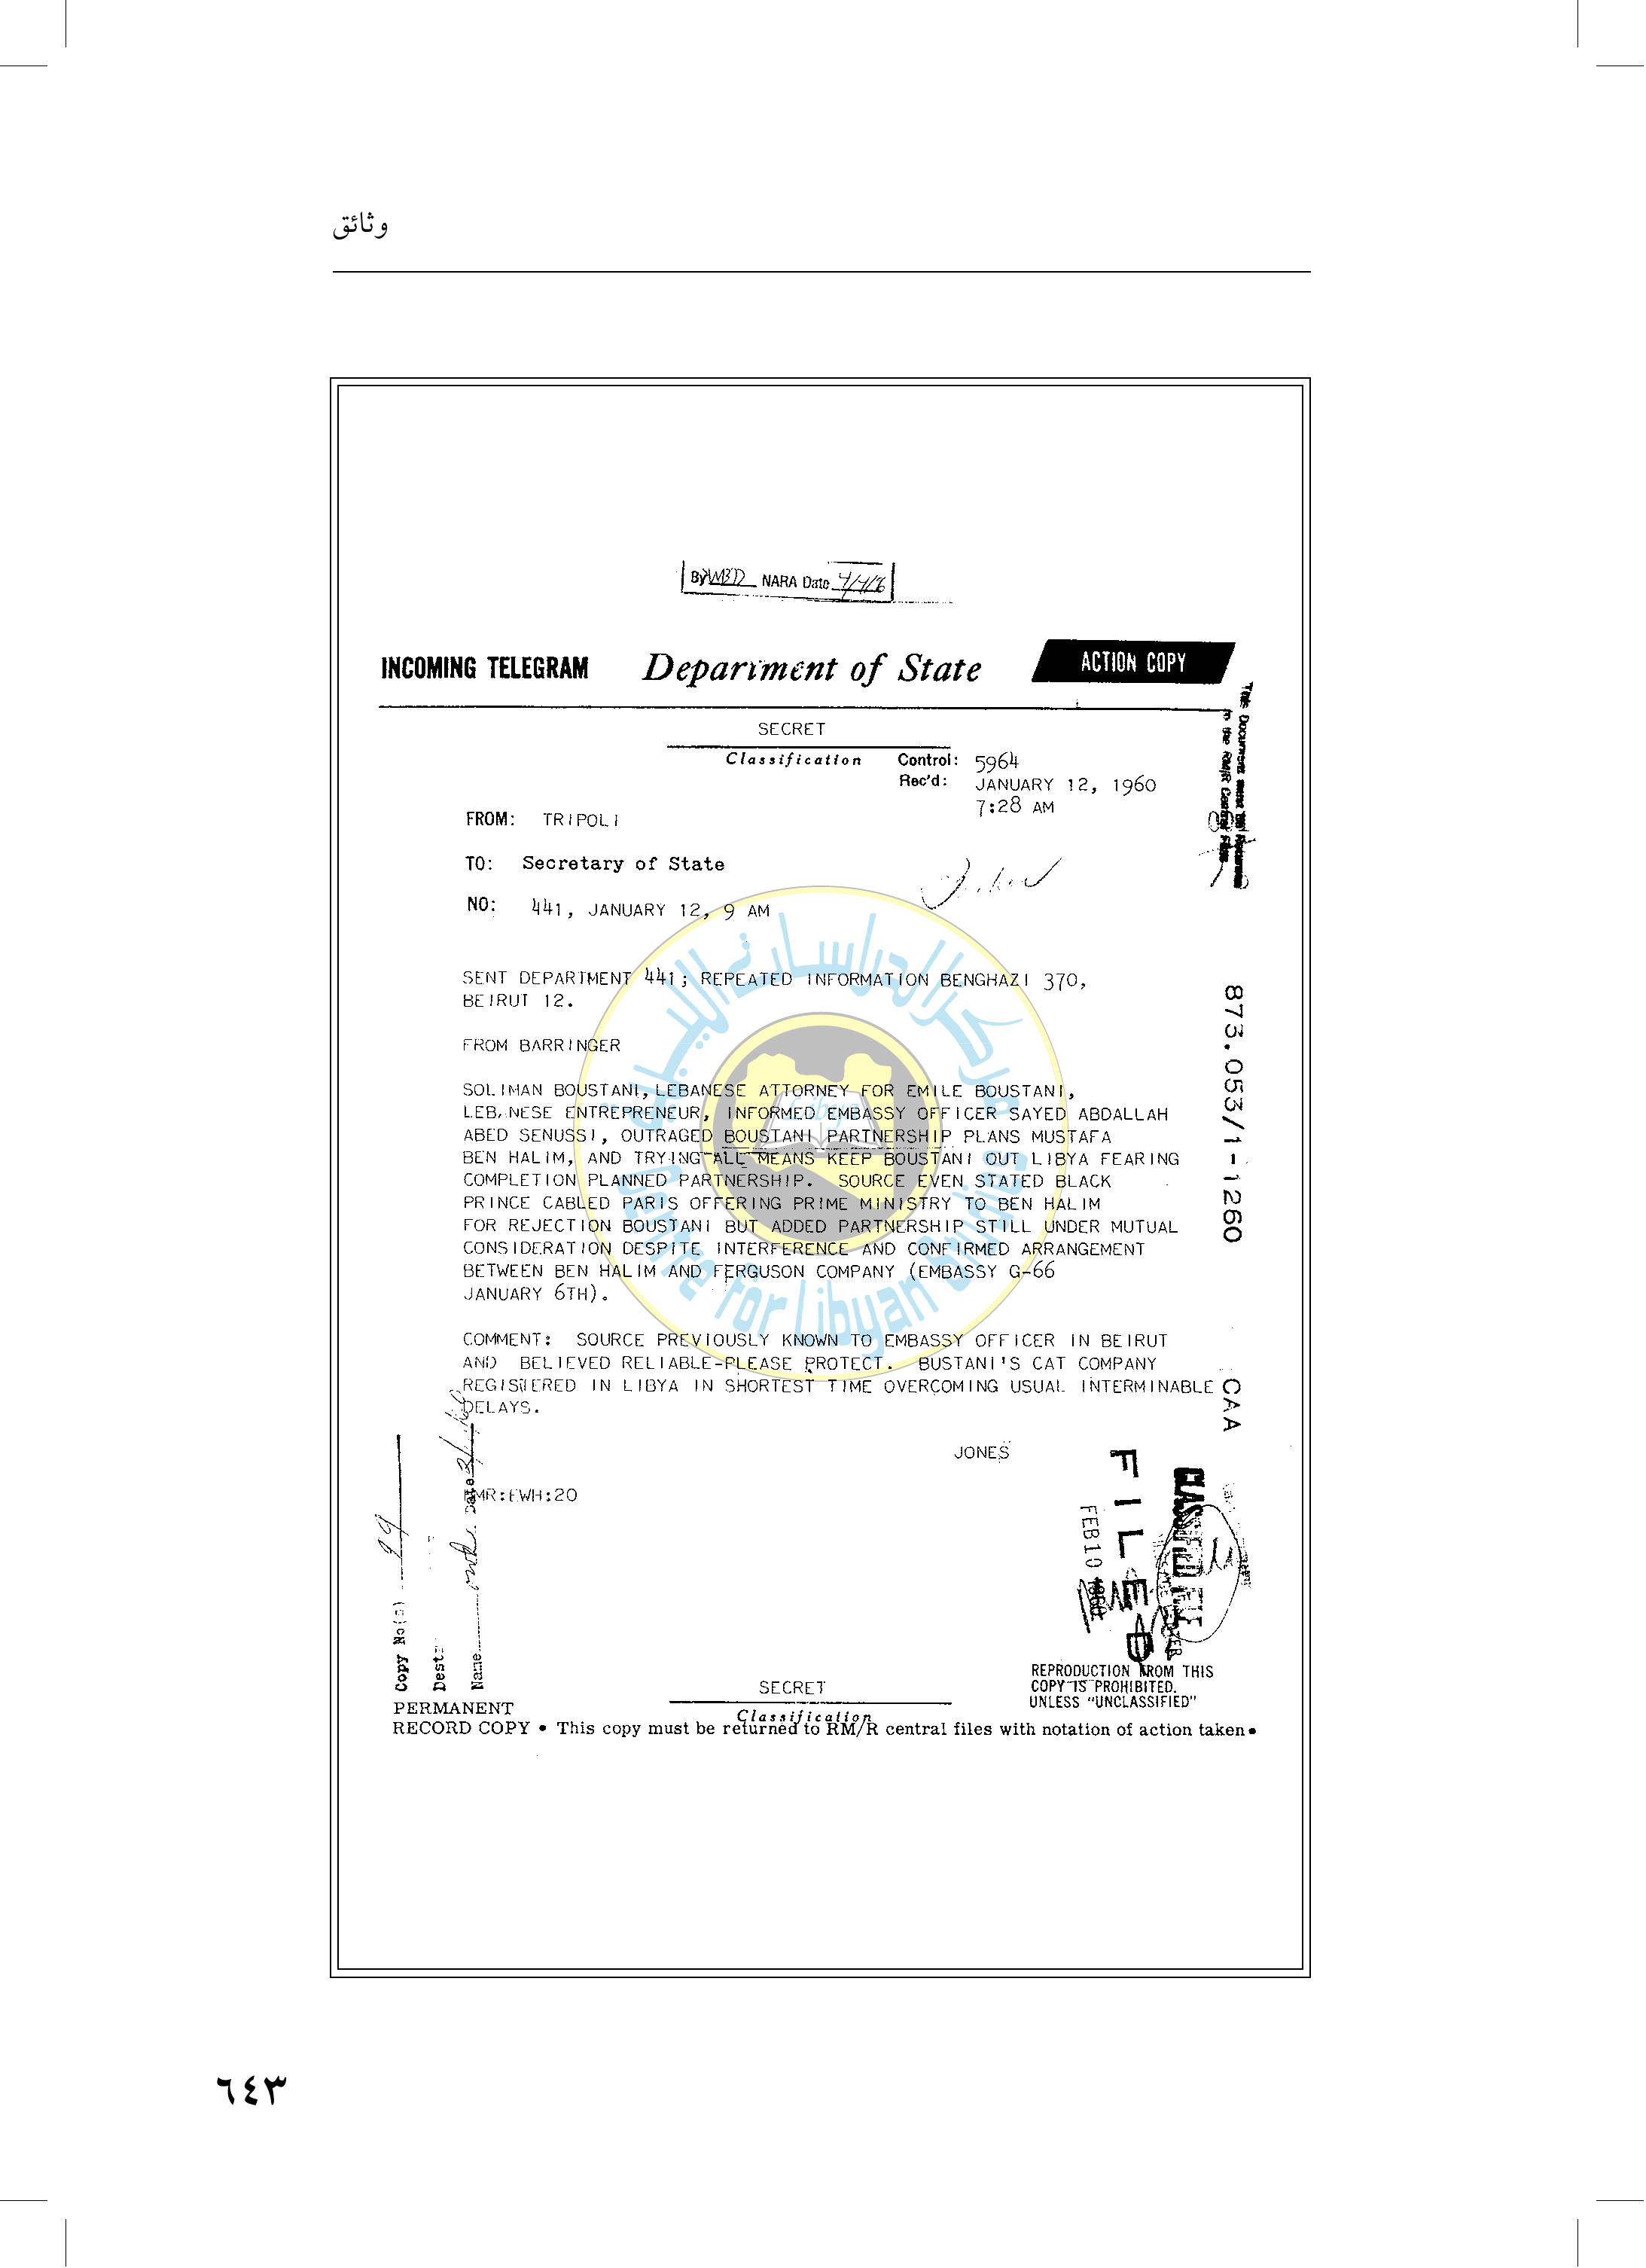 وثائق
By NARA Date
INCOMING TELEGRAM Department of State ACTION COPY
SECRET
Classification Control: 5964
Rec'd: JANUARY 12, 1960
7:28 AM
FROM: TRIPOLI
TO: Secretary of State
NO: 441, JANUARY 12, 9 AM
SENT DEPARTMENT 441; REPEATED INFORMATION BENGHAZI 370,
BEIRUT 12.
FROM BARRINGER
SOLIMAN BOUSTANI, LEBANESE ATTORNEY FOR EMILE BOUSTANI,
LEB NESE ENTREPRENEUR, INFORMED EMBASSY OFFICER SAYED ABDALLAH
ABED SENUSSI, OUTRAGED BOUSTANI PARTNERSHIP PLANS MUSTAFA
BEN HALIM, AND TRYING ALL MEANS KEEP BOUSTANI OUT LIBYA FEARING
COMPLETION PLANNED PARTNERSHIP. SOURCE EVEN STATED BLACK
PRINCE CABLED PARIS OFFERING PRIME MINISTRY TO BEN HALIM
FOR REJECTION BOUSTANI BUT ADDED PARTNERSHIP STILL UNDER MUTUAL
CONSIDERATION DESPITE INTERFERENCE AND CONFIRMED ARRANGEMENT
BETWEEN BEN HALIM AND FERGUSON COMPANY (EMBASSY G-66
JANUARY 6TH).
COMMENT: SOURCE PREVIOUSLY KNOWN TO EMBASSY OFFICER IN BEIRUT
AND BELIEVED RELIABLE-PLEASE PROTECT. BUSTANI'S CAT COMPANY
REGISTERED IN LIBYA IN SHORTEST TIME OVERCOMING USUAL INTERMINABLE
DELAYS.
JONES
MR:EWH:20
This Document must be Returned
to the RM/R Central Files
873.053/1-1260
CAA
FILED
FEB 10 1960
CLASSIFIED FILE
Copy No(s)
Dest:
Name Date
مركز الدراسات الليبية
Libya
Centre for Libyan Studies
REPRODUCTION FROM THIS
COPY IS PROHIBITED.
UNLESS "UNCLASSIFIED"
SECRET
Classification
PERMANENT
RECORD COPY • This copy must be returned to RM/R central files with notation of action taken •
٦٤٣